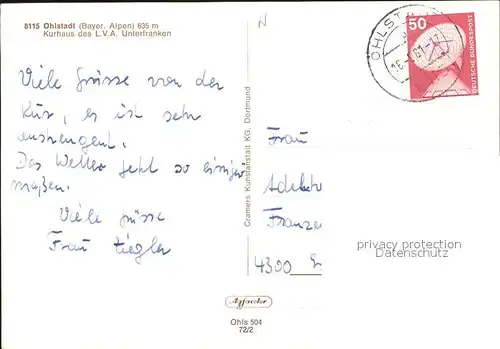 8115 Ohlstadt (Bayer. Alpen) 635 m
Kurhaus des L.V.A. Unterfranken
Viele Grüsse von der
Kur, es ist sehr
anstrengent.
Das Wetter geht so einiger
maßen.
Viele Grüsse
Frau Ziegler
Cramers Kunstanstalt KG, Dortmund
Ohls 504
72/2
50
DEUTSCHE BUNDESPOST
OHLST
Frau
Adelh
Franze
4300
privacy protection
Datenschutz